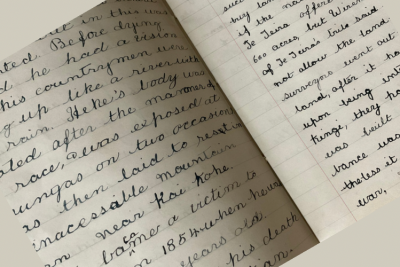 but in this un
ted. Before dying
d he had a vision
his countrymen were
g up like a river with
rain. Heke's body was
ated after the manner of
race, & was exposed at
ungas on two occasions
as then laid to rest in
inaccessable mountain
n near Kai kohe.
became a victim to
n 1854 when
years old.
his death
ian.
suc
buy lan
if the na
Te Teira offere
600 acres, but Wirem
of Te Teira's tribe said
not allow the land
surveyors went out
land, after it ha
upon being inte
Kingi, they ha
was built
tance was
theless it
war,